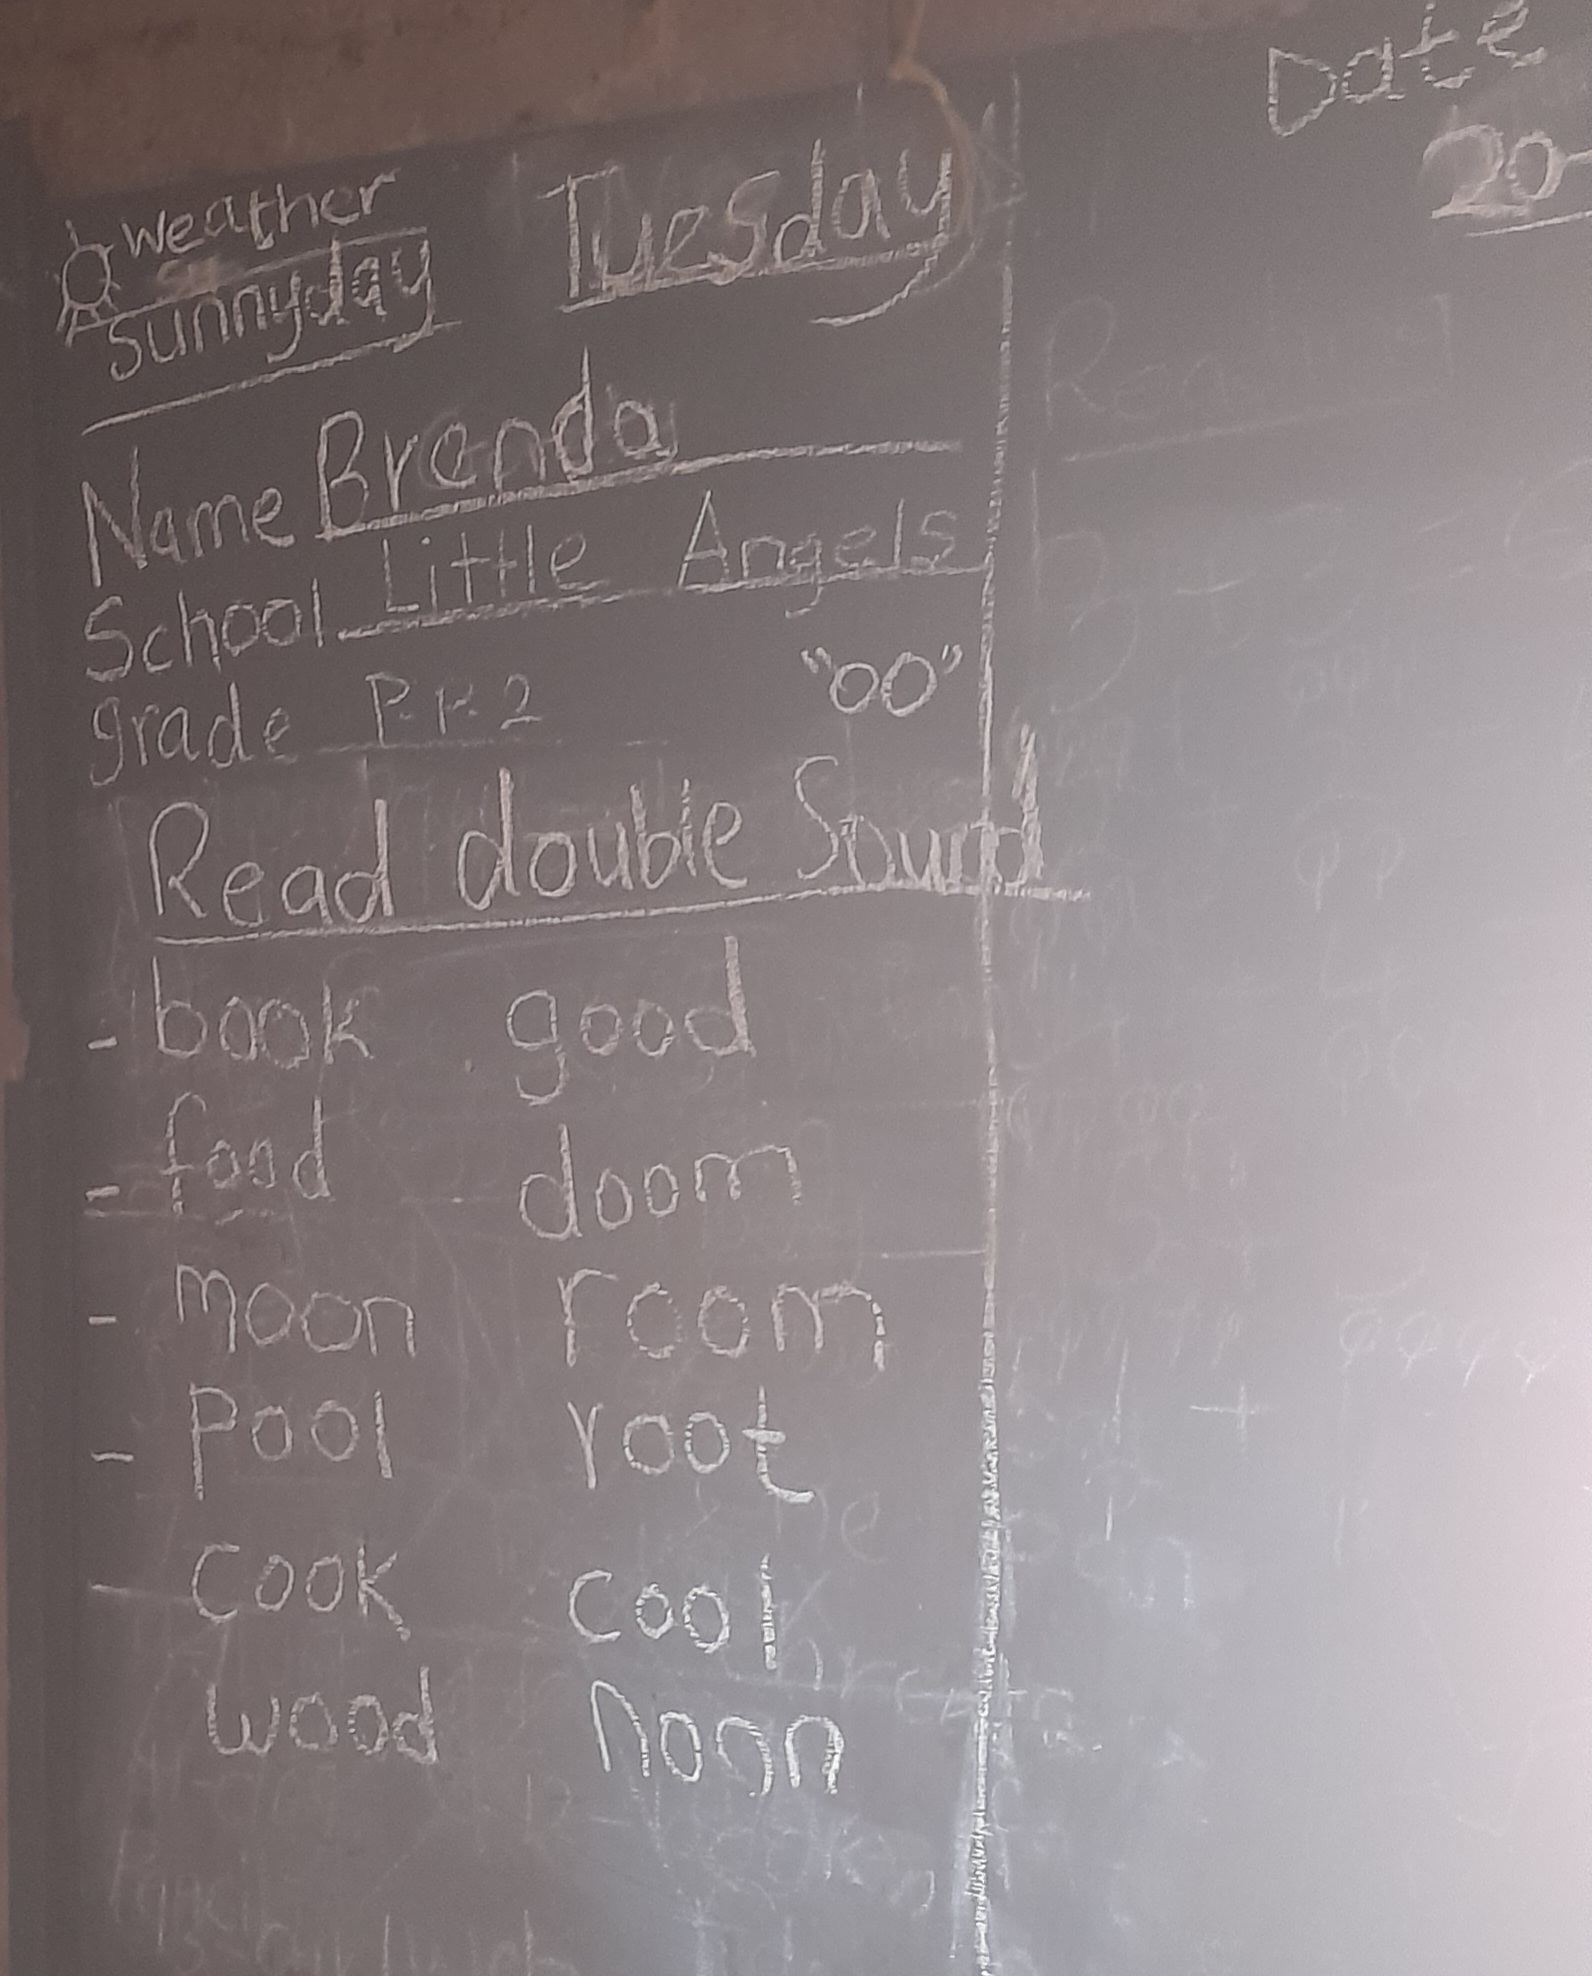 weather Tuesday Date
sunnyday 20-
Name Brenda
School Little Angels
grade P.P.2 "oo"
Read double Sound
- book good
- food doom
- moon room
- Pool root
- Cook cool
wood noon